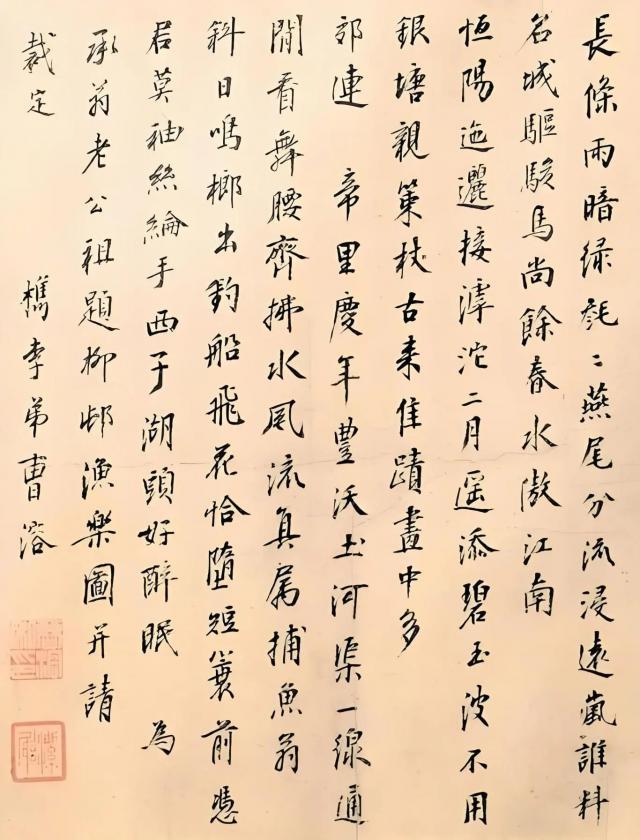 長條雨暗绿毿〻燕尾分流浸遠嵐誰料
名城驅駿馬尚餘春水傲江南
恒陽迤邐接滹沱二月遥添碧玉波不用
銀塘親策杖古来佳蹟畫中多
郊連 帝里慶年豐沃土河渠一線通
閒看舞腰齊拂水風流真属捕魚翁
斜日鳴榔出釣船飛花恰墮短簑前憑
君莫袖絲綸手西子湖頭好醉眠 為
承翁老公祖題柳邨漁樂圖并請
裁定 檇李弟曹溶